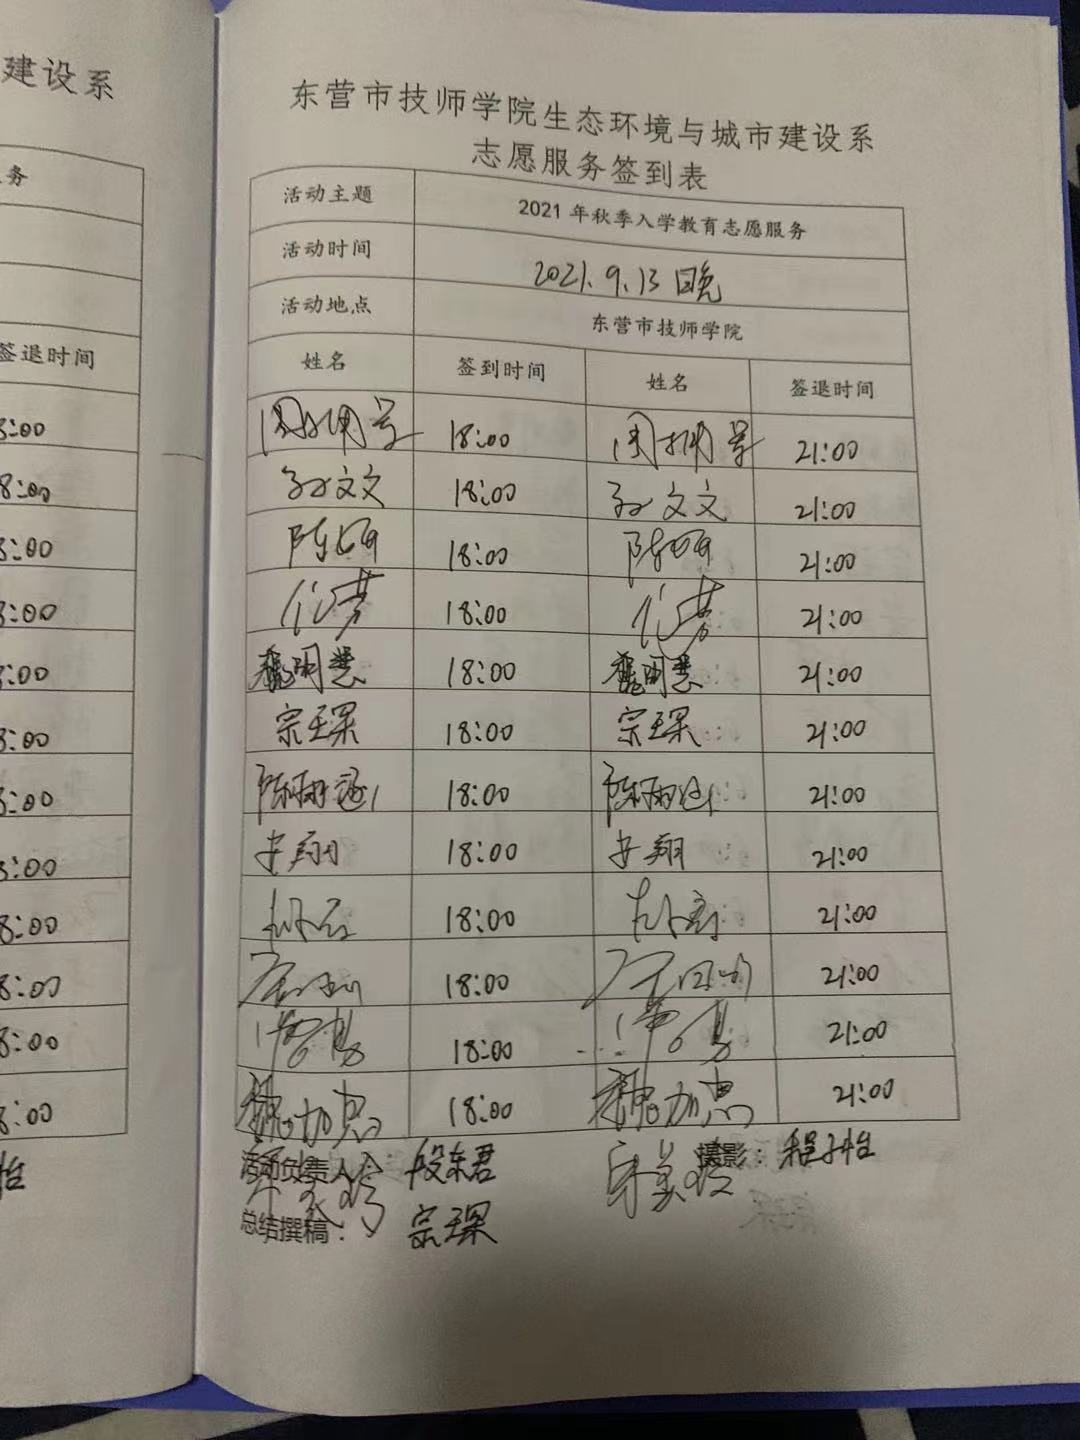 建设系
务
签退时间
8:00
8:00
8:00
8:00
8:00
8:00
8:00
8:00
8:00
8:00
8:00
8:00
怡
东营市技师学院生态环境与城市建设系
志愿服务签到表
活动主题 2021年秋季入学教育志愿服务
活动时间 2021.9.13 晚
活动地点 东营市技师学院
姓名 签到时间 姓名 签退时间
18:00 21:00
孙文文 18:00 孙文文 21:00
陈硕 18:00 陈硕 21:00
18:00 21:00
魏明慧 18:00 魏明慧 21:00
宗玉琛 18:00 宗玉琛 21:00
陈雨涵 18:00 陈雨涵 21:00
安翔 18:00 安翔 21:00
18:00 21:00
18:00 21:00
18:00 21:00
魏加忠 18:00 魏加忠 21:00
活动负责人: 段东君 摄影: 程子怡
总结撰稿: 宗玉琛